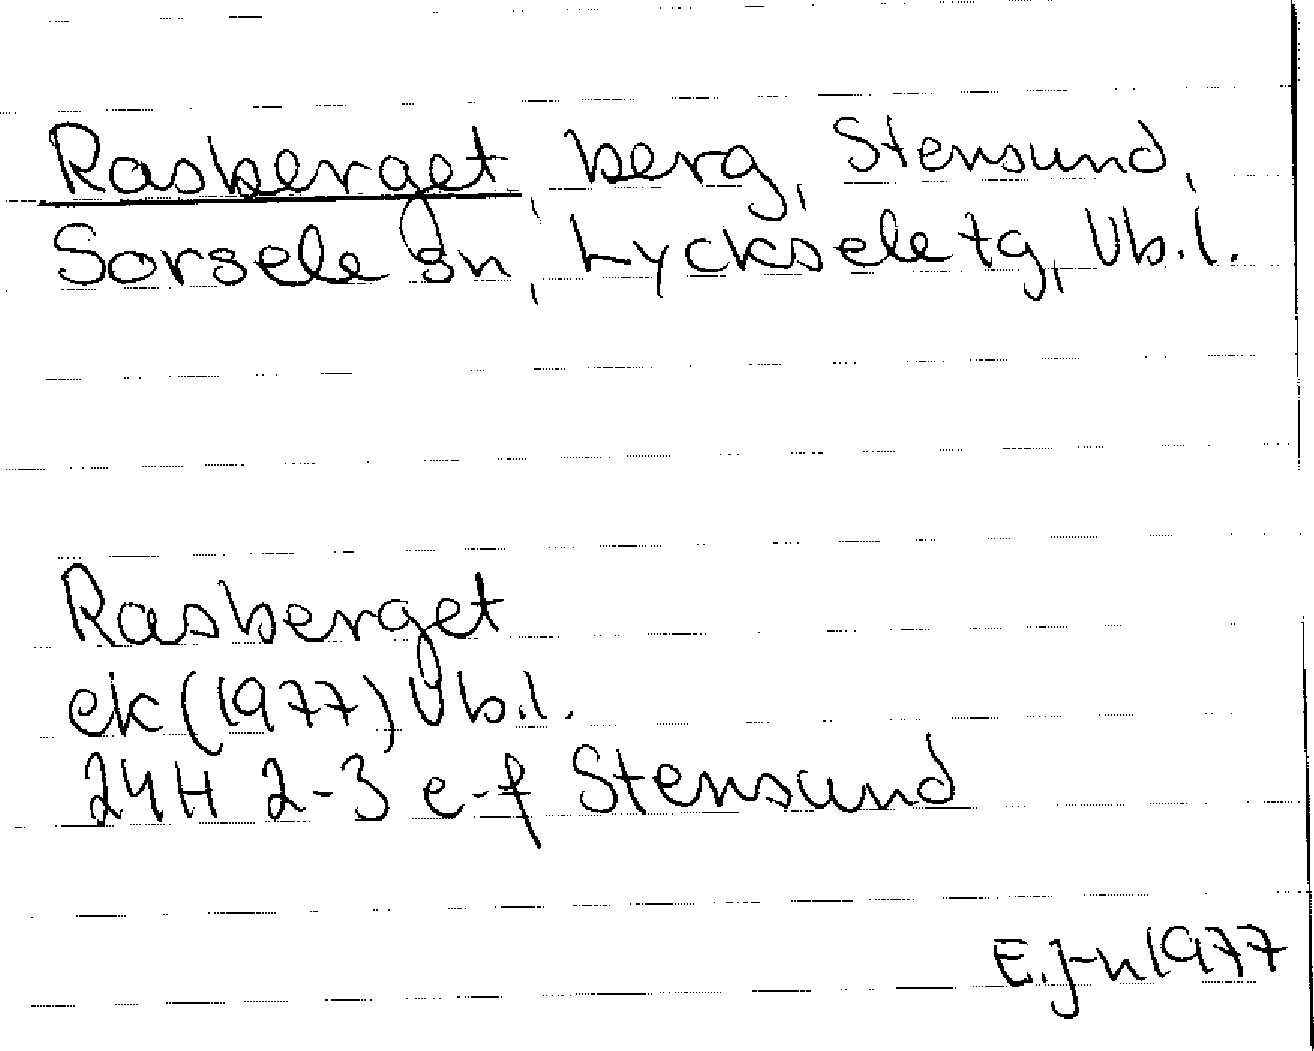 Rasberget, berg, Stensund,
Sorsele sn, Lycksele tg, Vb.l.
Rasberget
ek (1977) Vb.l.
24H 2-3 e-f Stensund
E.J-n 1977